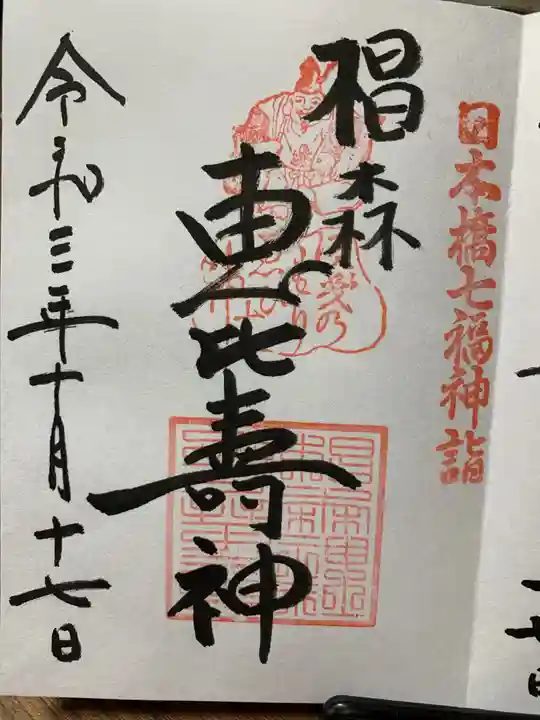 日本橋七福神詣
椙森
恵比壽神
令和三年十月十七日